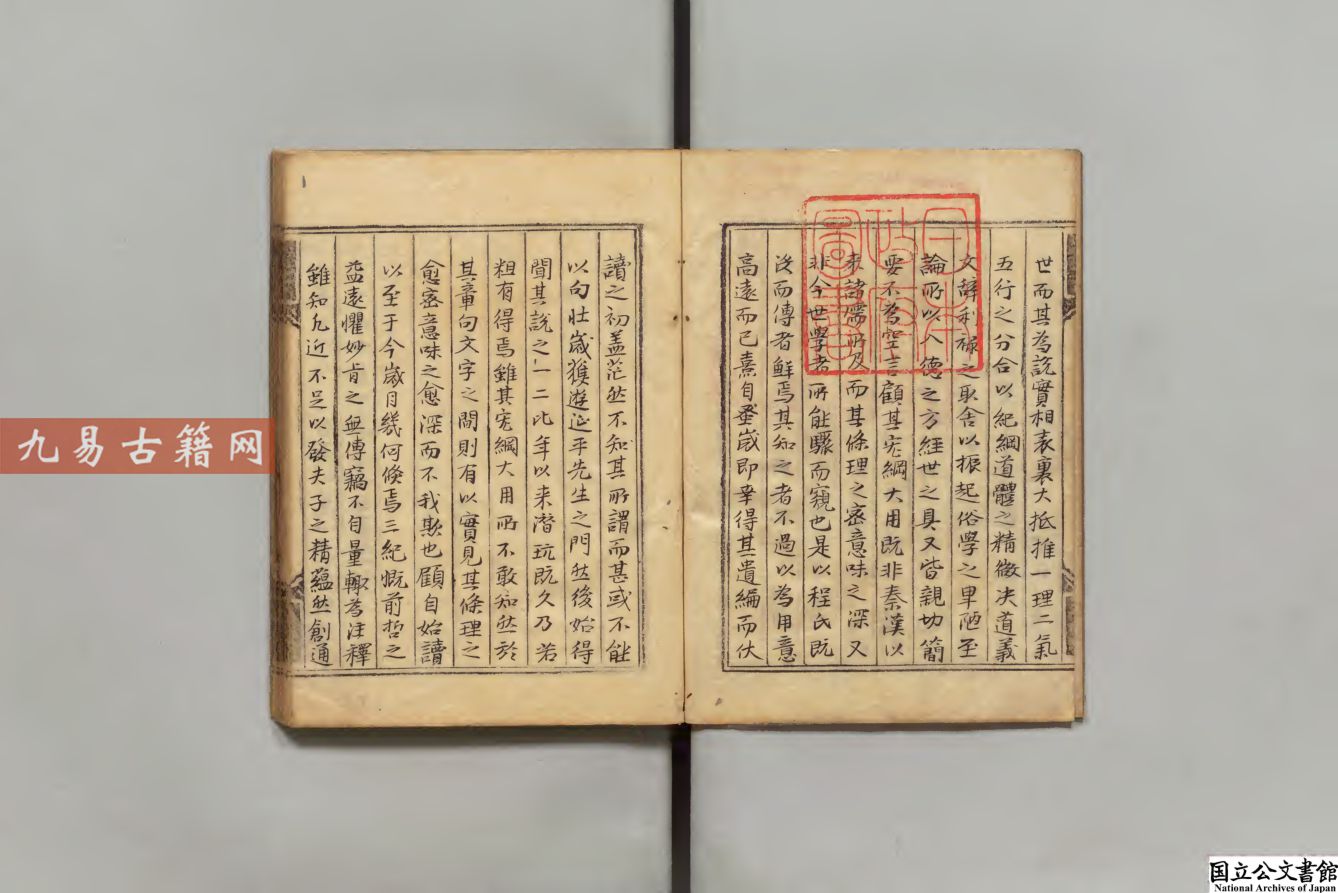 世而其為説實相表裏大抵推一理二氣
五行之分合以紀綱道體之精微决道義
文辭利祿之取舍以振起俗學之卑陋至
論所以入德之方經世之具又皆親切簡
要不為空言顧其宏綱大用既非秦漢以
来諸儒所及而其條理之密意味之深又
非今世學者所能驟而窺也是以程氏既
沒而傳者鮮焉其知之者不過以為用意
高遠而已熹自蚤歲即幸得其遺編而伏
讀之初盖茫然不知其所謂而甚或不能
以句壯歲獲遊延平先生之門然後始得
聞其說之一二比年以来潛玩既久乃若
粗有得焉雖其宏綱大用所不敢知然於
其章句文字之間則有以實見其條理之
愈密意味之愈深而不我欺也顧自始讀
以至于今歲月幾何倏焉三紀慨前哲之
益遠懼妙㫖之無傳竊不自量輙為注釋
雖知凡近不足以發夫子之精蘊然創通
日本
政府
圖書
九易古籍网
国立公文書館
National Archives of Japan